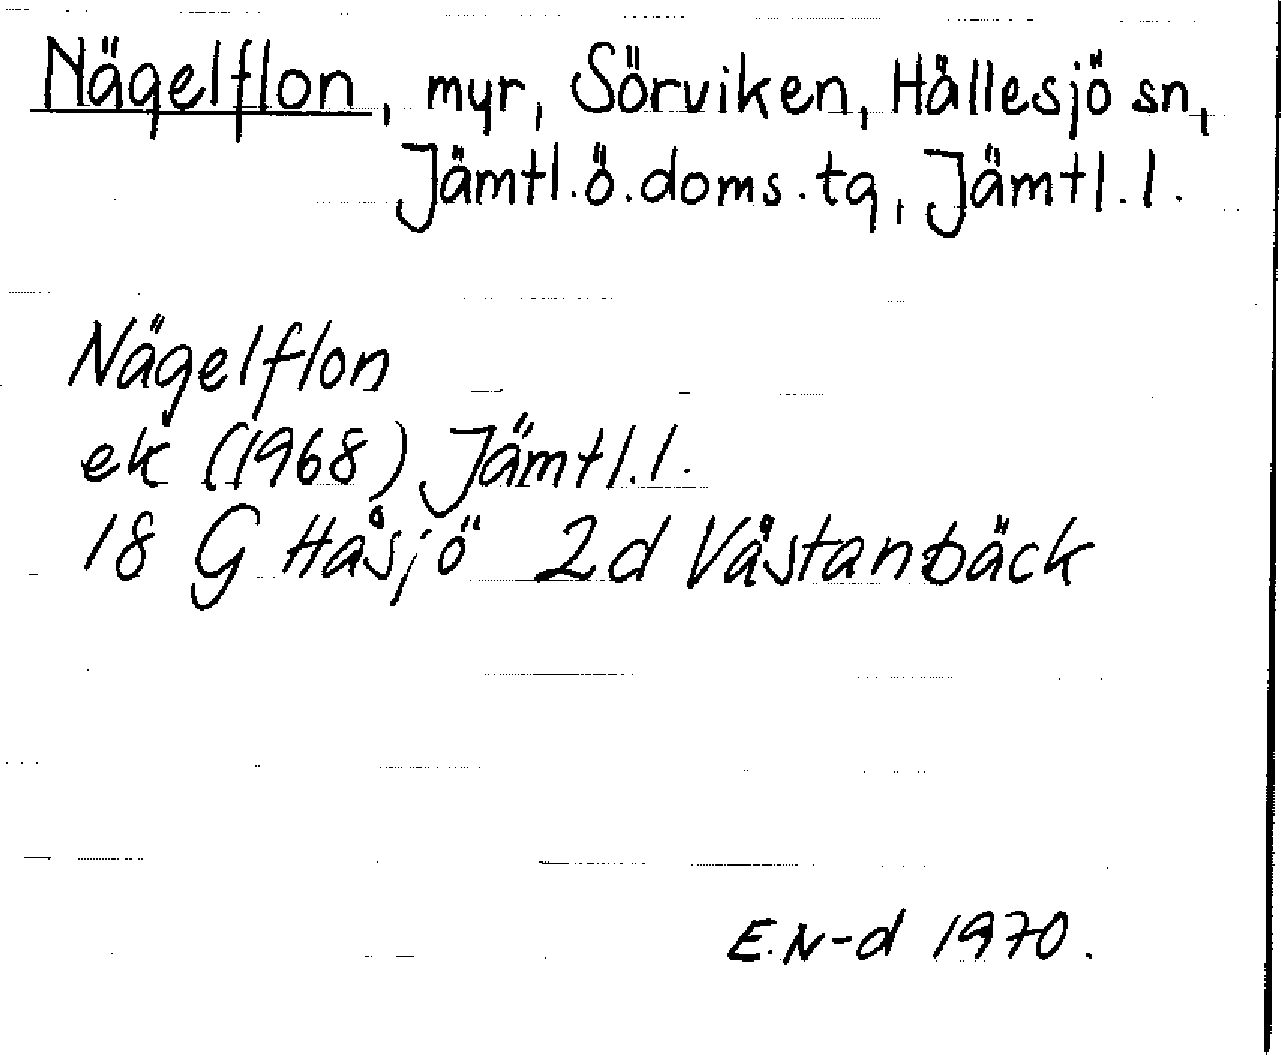 Nägelflon, myr, Sörviken, Hållesjö sn,
Jämtl. ö. doms. tg, Jämtl. l.
Nägelflon
ek (1968) Jämtl. l.
18 G Håsjö 2d Våstanbäck
E. N-d 1970.